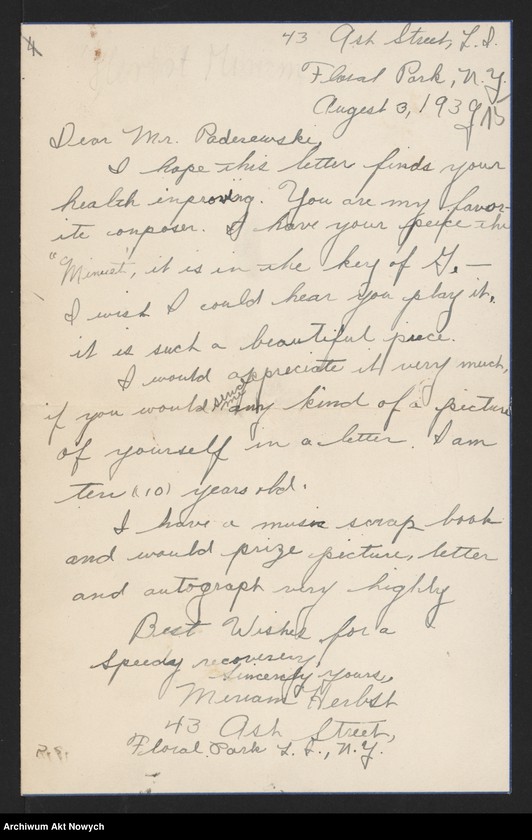 4
43 Ash Street, L. I.
Floral Park, N.Y.
Augest 3, 1939
Dear Mr. Paderewske,
I hope this letter finds your
health inproving. You are my favor-
ite conposer. I have your peice the
"Minuet", it is in the key of G. —
I wish I could hear you play it,
it is such a beautiful piece.
I would appreciate it very much,
if you would send
me
any kind of a picture
of yourself in a letter. I am
ten (10) years old.
I have a music scrap book
and would prize picture, letter
and autograph very highly
Best Wishes for a
speedy recoverery
Sincerely yours,
Miriam Herbst
43 Ash Street,
Floral Park L. I., N.Y.
P.S.
Archiwum Akt Nowych